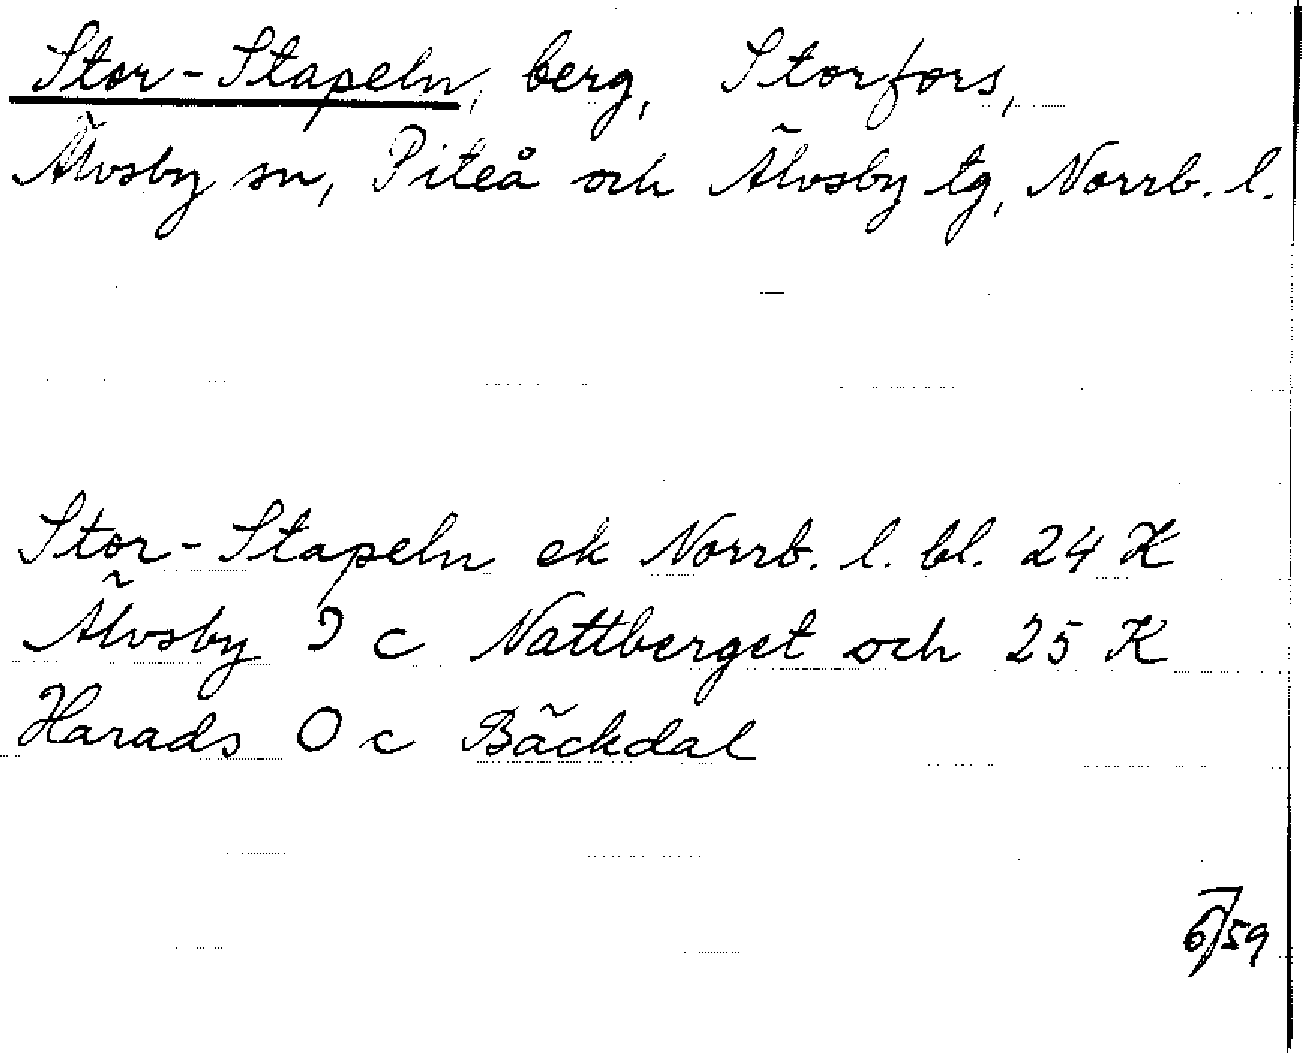 Stor-Stapeln, berg, Storfors,
Älvsby sn, Piteå och Älvsby tg, Norrb. l.
Stor-Stapeln ek Norrb. l. bl. 24 K
Älvsby I c Nattberget och 25 K
Harads O c Bäckdal
/59